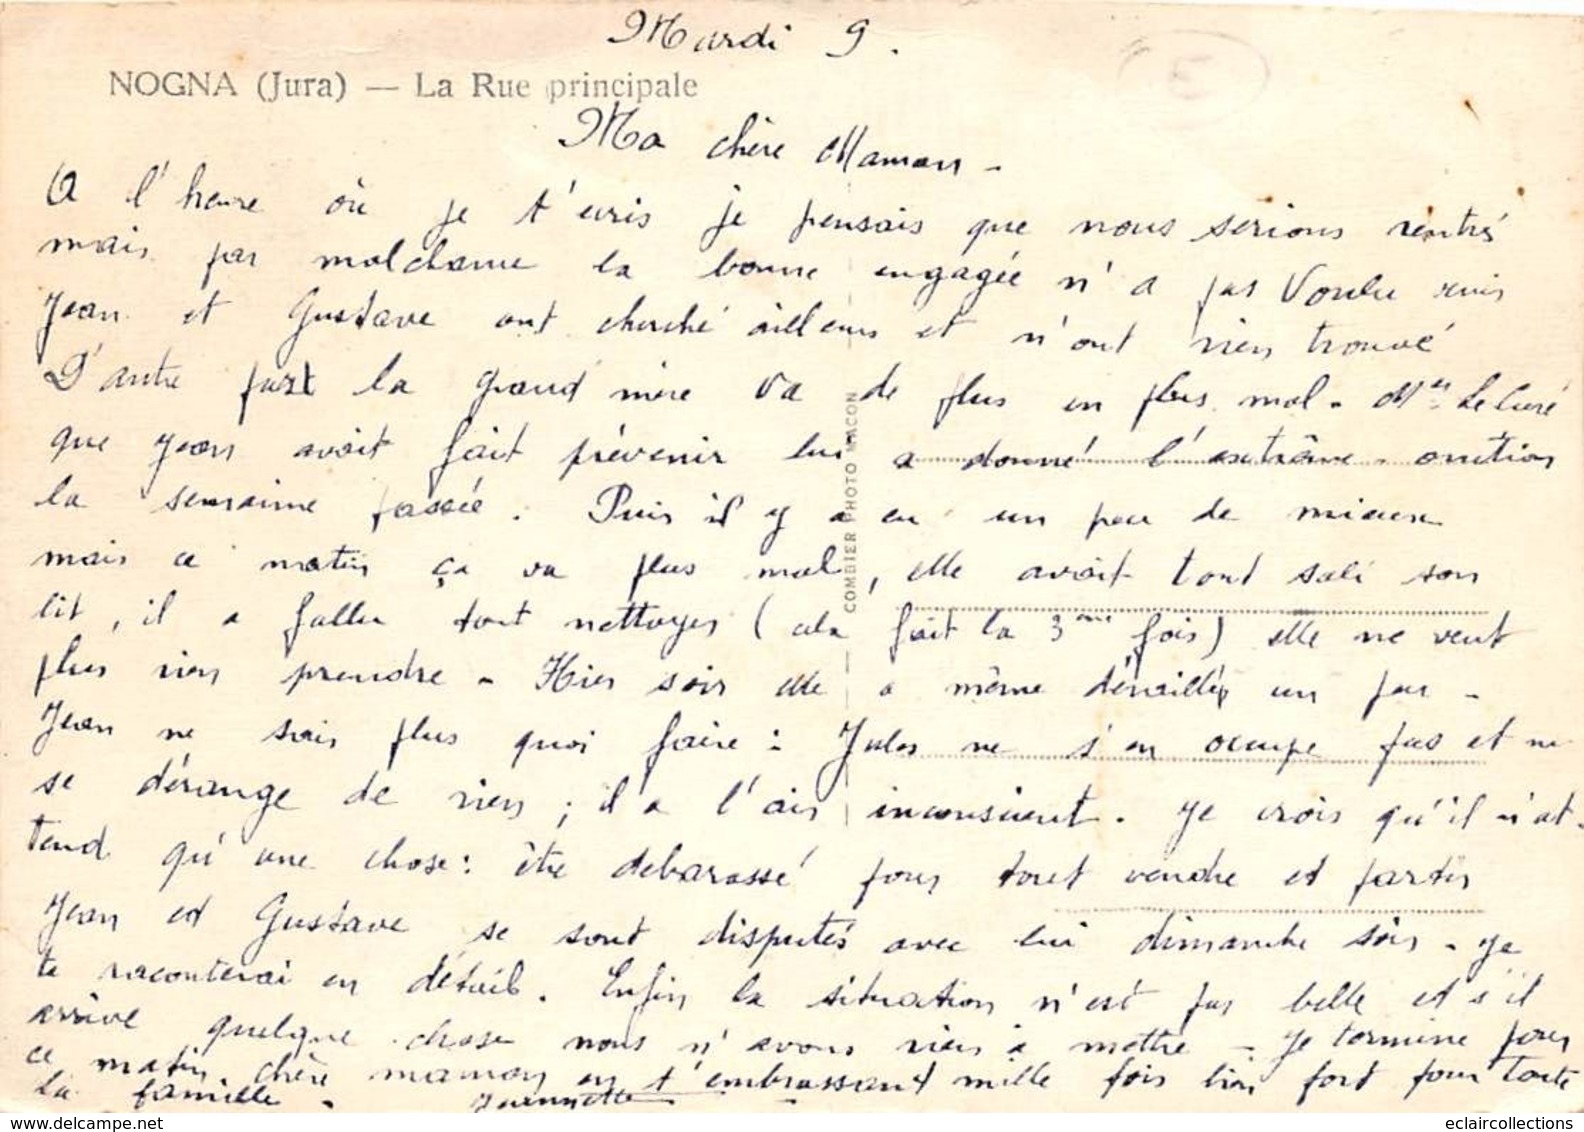 Mardi 9.
NOGNA (Jura) — La Rue principale
Ma chère Maman -
A l'heure où je t'écris je pensais que nous serions rentrés
mais par malchance la bonne engagée n'a pas voulu venir
Jean et Gustave ont cherché ailleurs et n'ont rien trouvé
D'autre part la grand'mère va de plus en plus mal. Mr Le Curé
que Jean avait fait prévenir lui a donné l'extrême-onction
la semaine passée. Puis il y a eu un peu de mieux
mais ce matin ça va plus mal, elle avait tout sali son
lit, il a fallu tout nettoyer (cela fait la 3ème fois) elle ne veut
plus rien prendre - Hier soir elle a même déraillé un peu -
Jean ne sais plus quoi faire : Jules ne s'en occupe pas et ne
se dérange de rien ; il a l'air inconscient. Je crois qu'il n'at-
tend qu'une chose : être debarassé pour tout vendre et partir
Jean et Gustave se sont disputés avec lui dimanche soir - Je
te raconterai en détail. Enfin la situation n'est pas belle et s'il
arrive quelque chose nous n'avons rien à mettre - Je termine pour
ce matin chère maman en t'embrassant mille fois bien fort pour toute
la famille.
Jeannette
COMBIER PHOTO MACON
E
eclaircollections